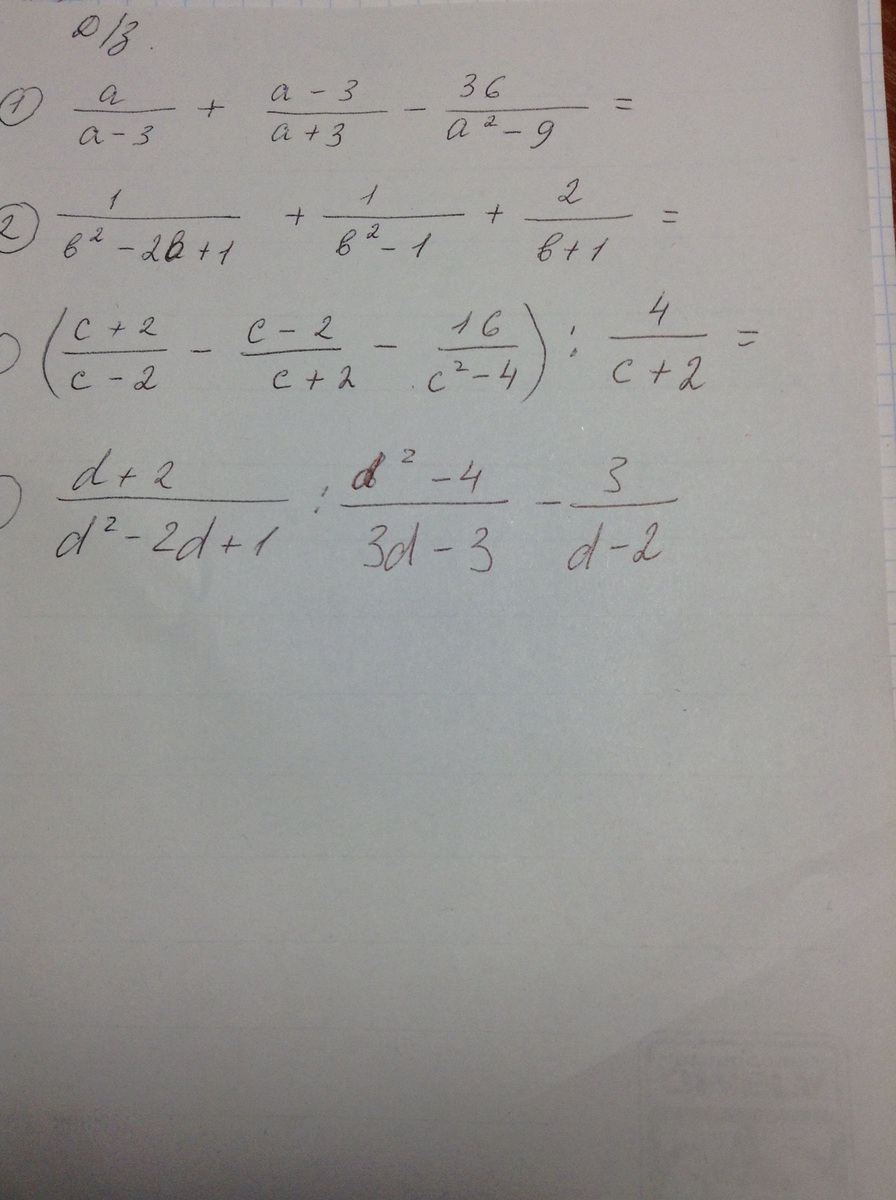 Д/з.
① a/(a - 3) + (a - 3)/(a + 3) - 36/(a² - 9) =
② 1/(в² - 2в + 1) + 1/(в² - 1) + 2/(в + 1) =
((c + 2)/(c - 2) - (c - 2)/(c + 2) - 16/(c² - 4)) : 4/(c + 2) =
(d + 2)/(d² - 2d + 1) : (d² - 4)/(3d - 3) - 3/(d - 2)